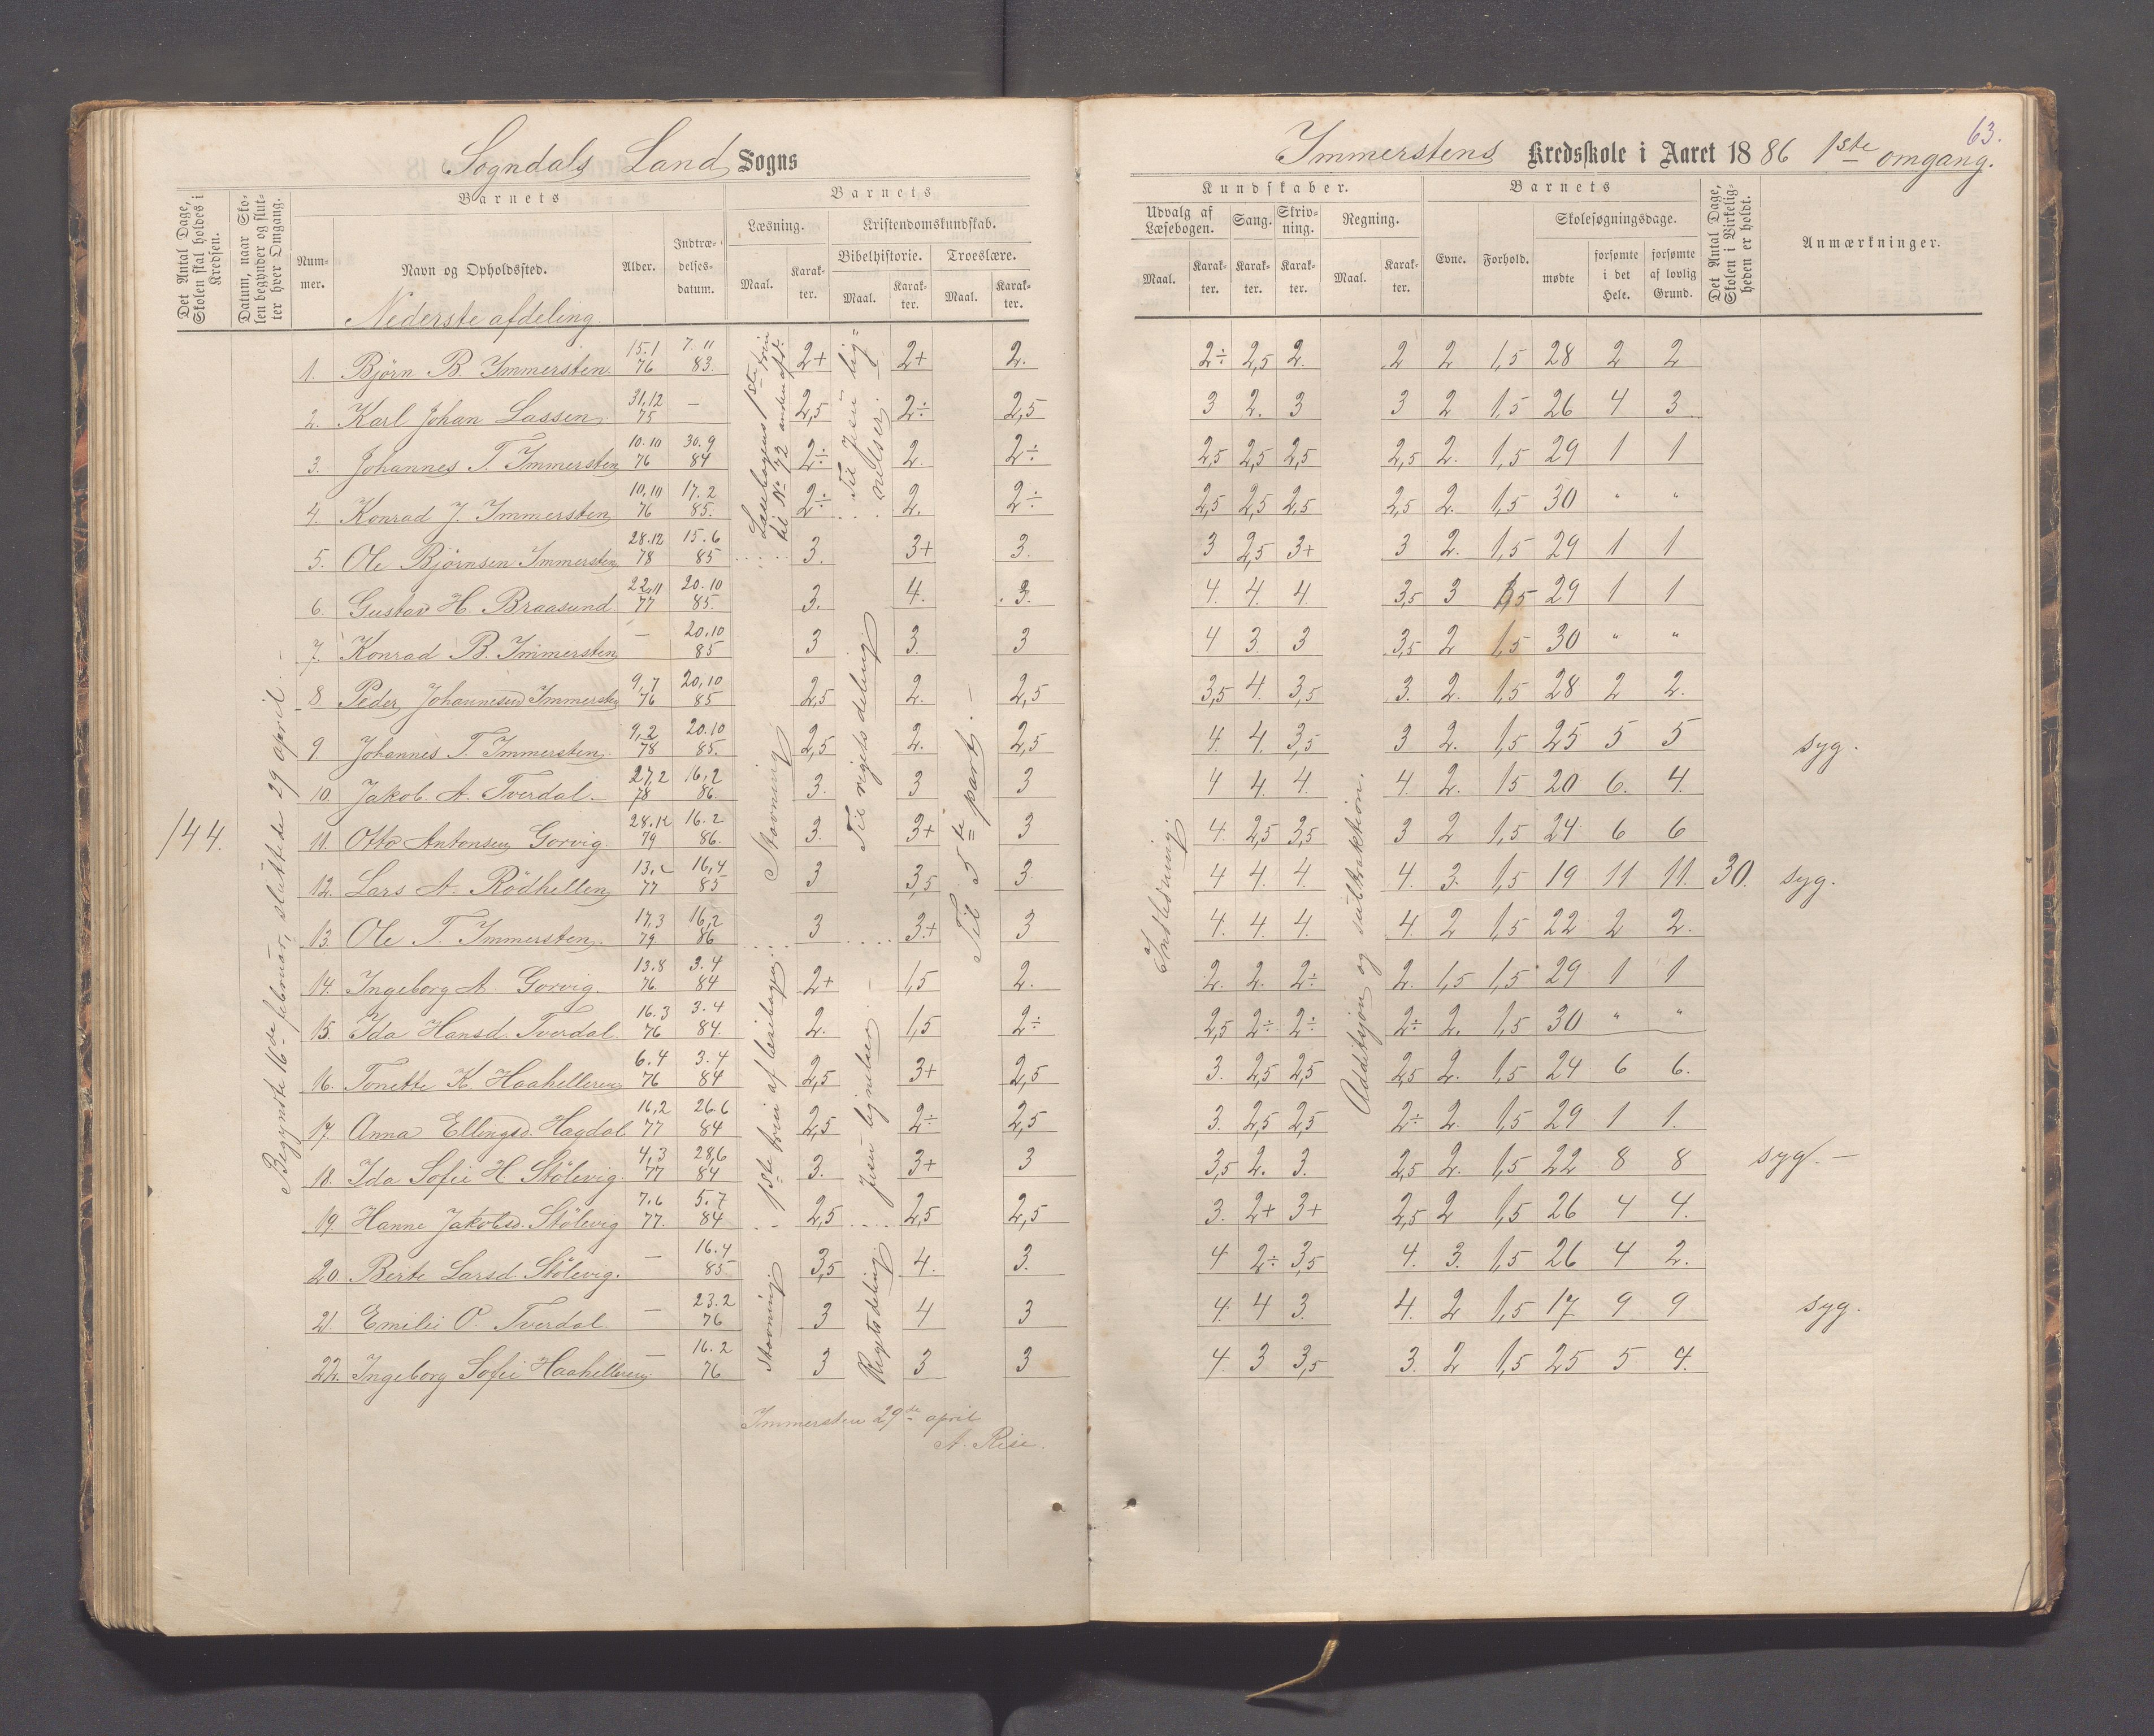 63.
Sogndals Land Sogns
Immerstens Kredsskole i Aaret 1886 1ste omgang.
Det Antal Dage, Skolen skal holdes i Kredsen.
Datum, naar Skolen begynder og slutter hver Omgang.
Barnets
Nummer.
Navn og Opholdssted.
Alder.
Indtrædelsesdatum.
Barnets
Læsning.
Maal.
Karakter.
Kristendomskundskab.
Bibelhistorie.
Maal.
Karakter.
Troeslære.
Maal.
Karakter.
Kundskaber.
Udvalg af Læsebogen.
Maal.
Karakter.
Sang.
Karakter.
Skrivning.
Karakter.
Regning.
Maal.
Karakter.
Barnets
Evne.
Forhold.
Skolesøgningsdage.
mødte
forsømte i det Hele.
forsømte af lovlig Grund.
Det Antal Dage, Skolen i Virkeligheden er holdt.
Anmærkninger.
Nederste afdeling.
144.
Begynte 16de februar, sluttede 29 april. –
1. Björn B. Immersten 15.1 76 7.11 83. 2+ 2+ 2. 2÷ 2,5 2. 2 2 1,5 28 2 2
2. Karl Johan Lassen 31,12 75 – 2,5 2÷ 2,5 3 2. 3 3 2 1,5 26 4 3
3. Johannes T. Immersten 10.10 76 30.9 84 2÷ 2. 2÷ 2,5 2,5 2,5 2,5 2. 1,5 29 1 1
4. Konrad J. Immersten 10,10 76 17.2 85. 2÷ 2. 2÷ 2,5 2,5 2,5 2,5 2. 1,5 30 " "
5. Ole Björnsen Immersten 28.12 78 15.6 85 3. 3+ 3. 3 2,5 3+ 3 2. 1,5 29 1 1
6. Gustav H. Braasund 22,11 77 20.10 85. 3. 4. 3. 4. 4. 4 3,5 3 1,5 29 1 1
7. Konrad B. Immersten – 20.10 85 3 3. 3 4 3. 3 3,5 2 1,5 30 " "
8 Peder Johannesen Immersten 9,7 76 20,10 85 2,5 2. 2,5 3,5 4. 3,5 3. 2. 1,5 28 2 2.
9. Johannes T. Immersten 9,2 78 20.10 85. 2,5 2. 2,5 4. 4. 3,5 3 2. 1,5 25 5 5 syg.
10. Jakob. A. Tverdal. 27,2 78 16,2 86. 3. 3 3 4 4. 4. 4. 2. 15 20 6. 4.
11. Otto Antonsen Gorvig. 28.12 79 16.2 86. 3. 3+ 3 4. 2,5 3,5 3 2 1,5 24 6 6
12. Lars A. Rödhellen 77 16,4 85 3 3,5 3 4 4. 4. 4. 3. 1,5 19 11 11. 30. syg.
13. Ole T. Immersten. 17,3 79 16,2 86 3 3+ 3 4. 4. 4. 4. 2 1,5 22 2 2.
14. Ingeborg A. Gorvig. 13.8 76. 3.4 84 2+ 1,5 2. 2. 2. 2÷ 2. 1,5 1,5 29 1 1
15. Ida Hansd. Tverdal 16.3 76 3.4 84. 2. 1,5 2÷ 2,5 2÷ 2÷ 2÷ 2. 1,5 30 " "
16. Tonette K. Haahelleren 6.4 76 3.4 84 2,5 3+ 2,5 3. 2,5 2,5 2,5 2. 1,5 24 6 6.
17. Anna Ellingsd. Hagdal 16,2 77 26.6 84 2,5 2÷ 2,5 3. 2,5 2,5 2÷ 2. 1,5 29 1 1.
18. Ida Sofie H. Stölevig. 4,3 77 28,6 84 3. 3+ 3 3,5 2. 3. 2,5 2. 1,5 22 8 8 syg. –
19. Hanne Jakobsd. Stölevig 7.6 77. 5.7 84 2,5 2,5 2,5 3. 2+ 3+ 2,5 2 1,5 26 4 4.
20 Berte Larsd. Stölevig. – 16.4 85 3,5 4. 3. 4 2÷ 3,5 4. 3. 1,5 26 4 2.
21. Emilie O. Tverdal – 23.2 76 3 4 3 4. 4 3. 4. 2 1,5 17 9 9 syg.
22. Ingeborg Sofie Haahelleren – 16.2 76 3 3 3 4. 3 3,5 3. 2 1,5 25 5 4.
Læsebogens 1ste trin til No 72 anden afd.
Stavning
1ste trin af læsebogen.
Stavning
Til Jesu lignelser.
Til rigets deling
Jesu lignelser. –
Rigets deling
Til 5te part. –
Indledning.
Additsjon og subtraktion.
Immersten 29de april
A. Risa.